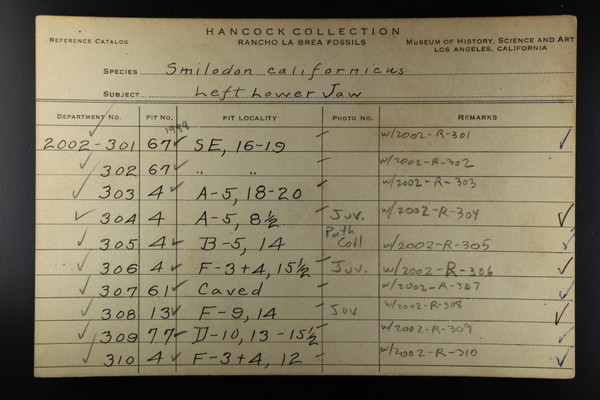 HANCOCK COLLECTION
REFERENCE CATALOG RANCHO LA BREA FOSSILS MUSEUM OF HISTORY, SCIENCE AND ART
LOS ANGELES, CALIFORNIA
SPECIES Smilodon californicus
SUBJECT Left Lower Jaw
DEPARTMENT NO. PIT NO. PIT LOCALITY PHOTO NO. REMARKS
2002-301 67 SE, 16-19 w/2002-R-301
302 67 " " w/2002-R-302
303 4 A-5, 18-20 w/2002-R-303
304 4 A-5, 8½ Juv. w/2002-R-304
305 4 B-5, 14 Path Coll w/2002-R-305
306 4 F-3+4, 15½ Juv. w/2002-R-306
307 61 Caved w/2002-R-307
308 13 F-9, 14 Juv w/2002-R-308
309 77 D-10, 13-15½ w/2002-R-309
310 4 F-3+4, 12 w/2002-R-310